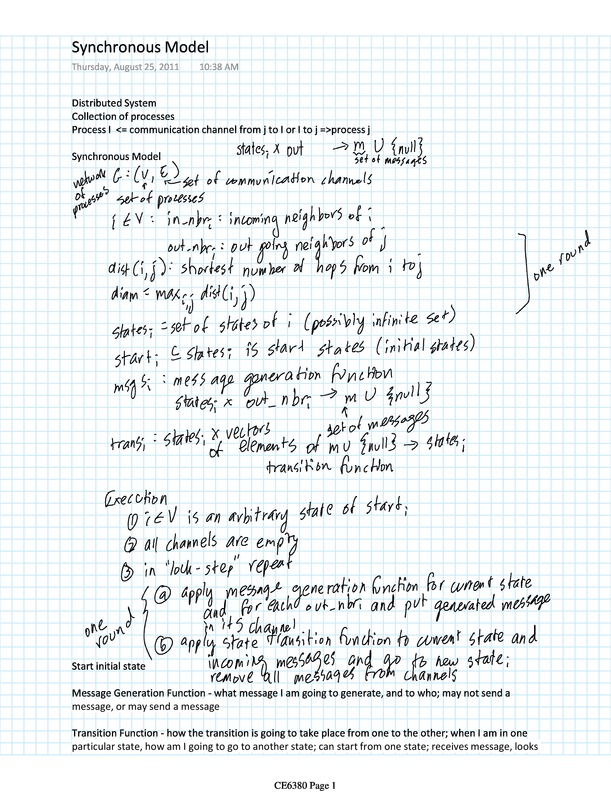 Synchronous Model
Thursday, August 25, 2011 10:38 AM
Distributed System
Collection of processes
Process I <= communication channel from j to I or I to j =>process j
states_i x out → m ∪ {null}
set of messages
Synchronous Model
network of processes G : (V, E) set of communication channels
set of processes
i ∈ V : in_nbr_i : incoming neighbors of i
out_nbr_i : out going neighbors of j
dist(i,j) : shortest number of hops from i to j
diam = max_i,j dist(i,j)
one round
states_i = set of states of i (possibly infinite set)
start_i ⊆ states_i is start states (initial states)
msgs_i : message generation function
states_i x out_nbr_i → m ∪ {null}
set of messages
trans_i : states_i x vectors
of elements of m ∪ {null} → states_i
transition function
Execution
① i ∈ V is an arbitrary state of start_i
② all channels are empty
③ in "lock-step" repeat
ⓐ apply message generation function for current state
and for each out_nbr_i and put generated message
in its channel
one round
ⓑ apply state transition function to current state and
incoming messages and go to new state;
remove all messages from channels
Start initial state
Message Generation Function - what message I am going to generate, and to who; may not send a
message, or may send a message
Transition Function - how the transition is going to take place from one to the other; when I am in one
particular state, how am I going to go to another state; can start from one state; receives message, looks
CE6380 Page 1